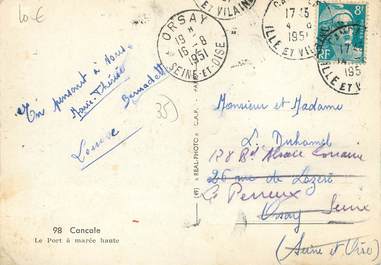 10€
ORSAY
18 H
16-8
1951
SEINE-ET-OISE
17 15
195
ILLE ET VILAINE
8F
RF
17
195
ILLE ET V
En pensant à vous
Marie-Thérèse
Bernadette
Louise
35
Monsieur et Madame
L. Duhamel
128 Bd Alsace Lorraine
26 rue de Lozère
Le Perreux
Orsay Seine
(Seine et Oise)
"REAL-PHOTO" C.A.P.
98 Cancale
Le Port à marée haute